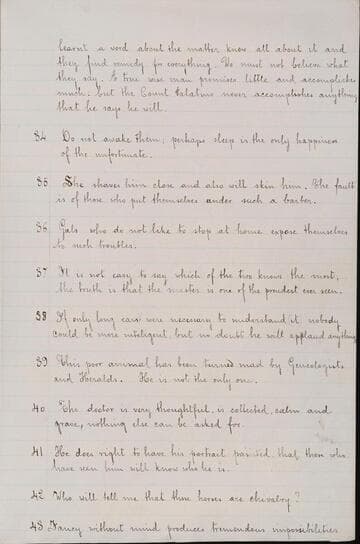 learnt a word about the matter know all about it and
they find remedy for everything. We must not believe what
they say. A true wise man promises little and accomplishes
much; but the Count Palatino never accomplishes anything
that he says he will.
34 Do not awake them; perhaps sleep is the only happiness
of the unfortunate.
35 She shaves him close and also will skin him. The fault
is of those who put themselves under such a barber.
36 Gals who do not like to stop at home expose themselves
to such troubles.
37 It is not easy to say which of the two knows the most;
the truth is that the master is one of the proudest ever seen.
38 If only long ears were necessary to understand it, nobody
could be more inteligent, but no doubt he will applaud anything
39 This poor animal has been turned mad by Geneologists
and Heralds. He is not the only one.
40 The doctor is very thoughtful, is collected, calm and
grave, nothing else can be asked for.
41 He does right to have his portrait painted, that those who
have seen him will know who he is.
42 Who will tell me that those horses are chivalry?
43 Fancy without mind produces tremendous impossibilities